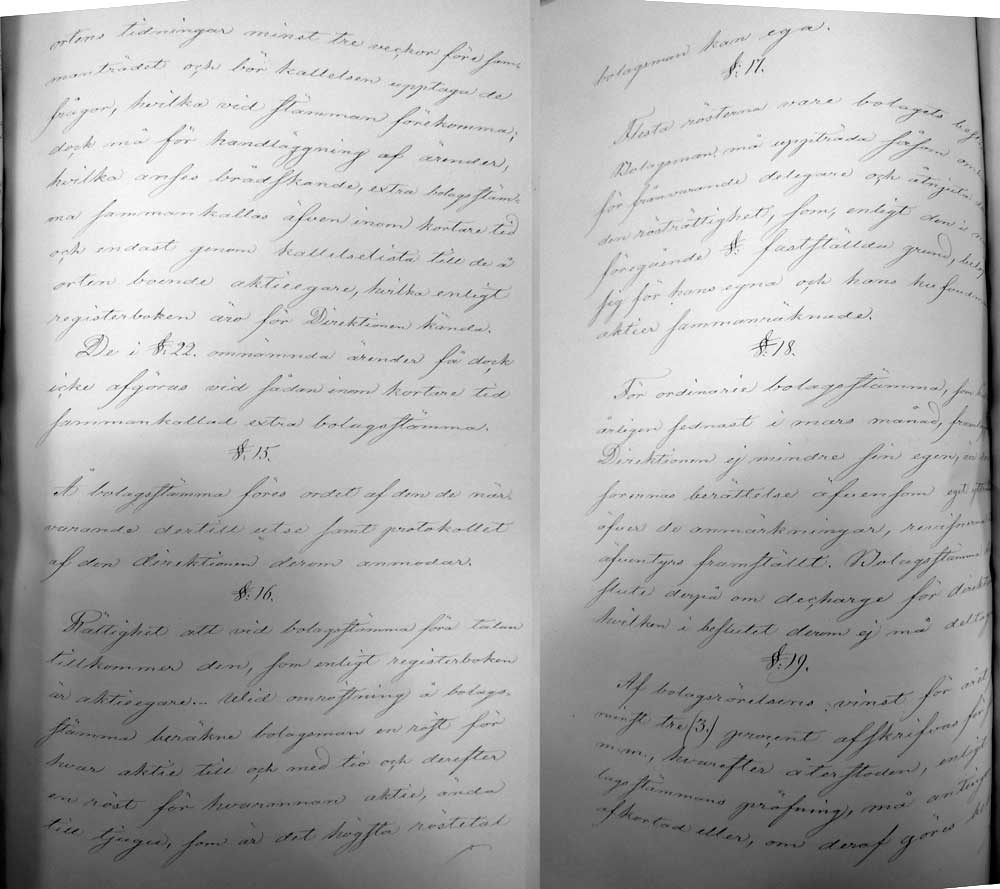 ortens tidningar minst tre veckor före sam-
manträdet och bör kallelsen upptaga de
frågor, hvilka vid stämman förekomma;
dock må för handläggning af ärender,
hvilka anses brådskande, extra bolagsstäm-
ma sammankallas äfven inom kortare tid
och endast genom kallelselista till de å
orten boende aktieegare, hvilka enligt
registerboken äro för Direktionen kända.
De i §. 22. omnämnda ärender få dock
icke afgöras vid sådan inom kortare tid
sammankallad extra bolagsstämma.
§. 15.
Å bolagsstämma föres ordet af den de när-
varande dertill utse samt protokollet
af den direktionen derom anmodar.
§. 16.
Rättighet att vid bolagsstämma föra talan
tillkommer den, som enligt registerboken
är aktieegare... Wid omröstning å bolags-
stämma beräkne bolagsman en röst för
hvar aktie till och med tio och derefter
en röst för hvarannan aktie, ända
till tjugu, som är det högsta röstetal
bolagsman kan ega.
§. 17.
Flesta rösterna vare bolagets
Bolagsman må uppträda såsom
för frånvarande delegare och utnyttja
den rösträttighet, som, enligt den i
föregående §. fastställda grund,
sig för hans egna och hans
aktier sammanräknade.
§. 18.
För ordinarie bolagsstämma, som
årligen sednast i mars månad,
Direktionen ej mindre sin egen,
sorernas berättelse äfvensom eget
öfver de anmärkningar, revisorerna
äfventyrs framställt. Bolagsstämma
sluti derpå om decharge för
hvilken i beslutet derom ej må deltaga
§. 19.
Af bolagsrörelsens vinst för året
minst tre (3.) procent afskrifvas för
m.m., hvarefter återstoden, enligt
lagsstämmans pröfning, må antingen
afkortad eller, om deraf göres